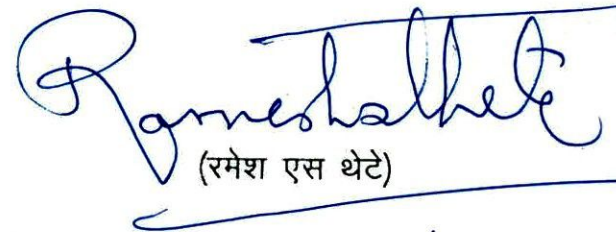 Rameshsthete
(रमेश एस थेटे)